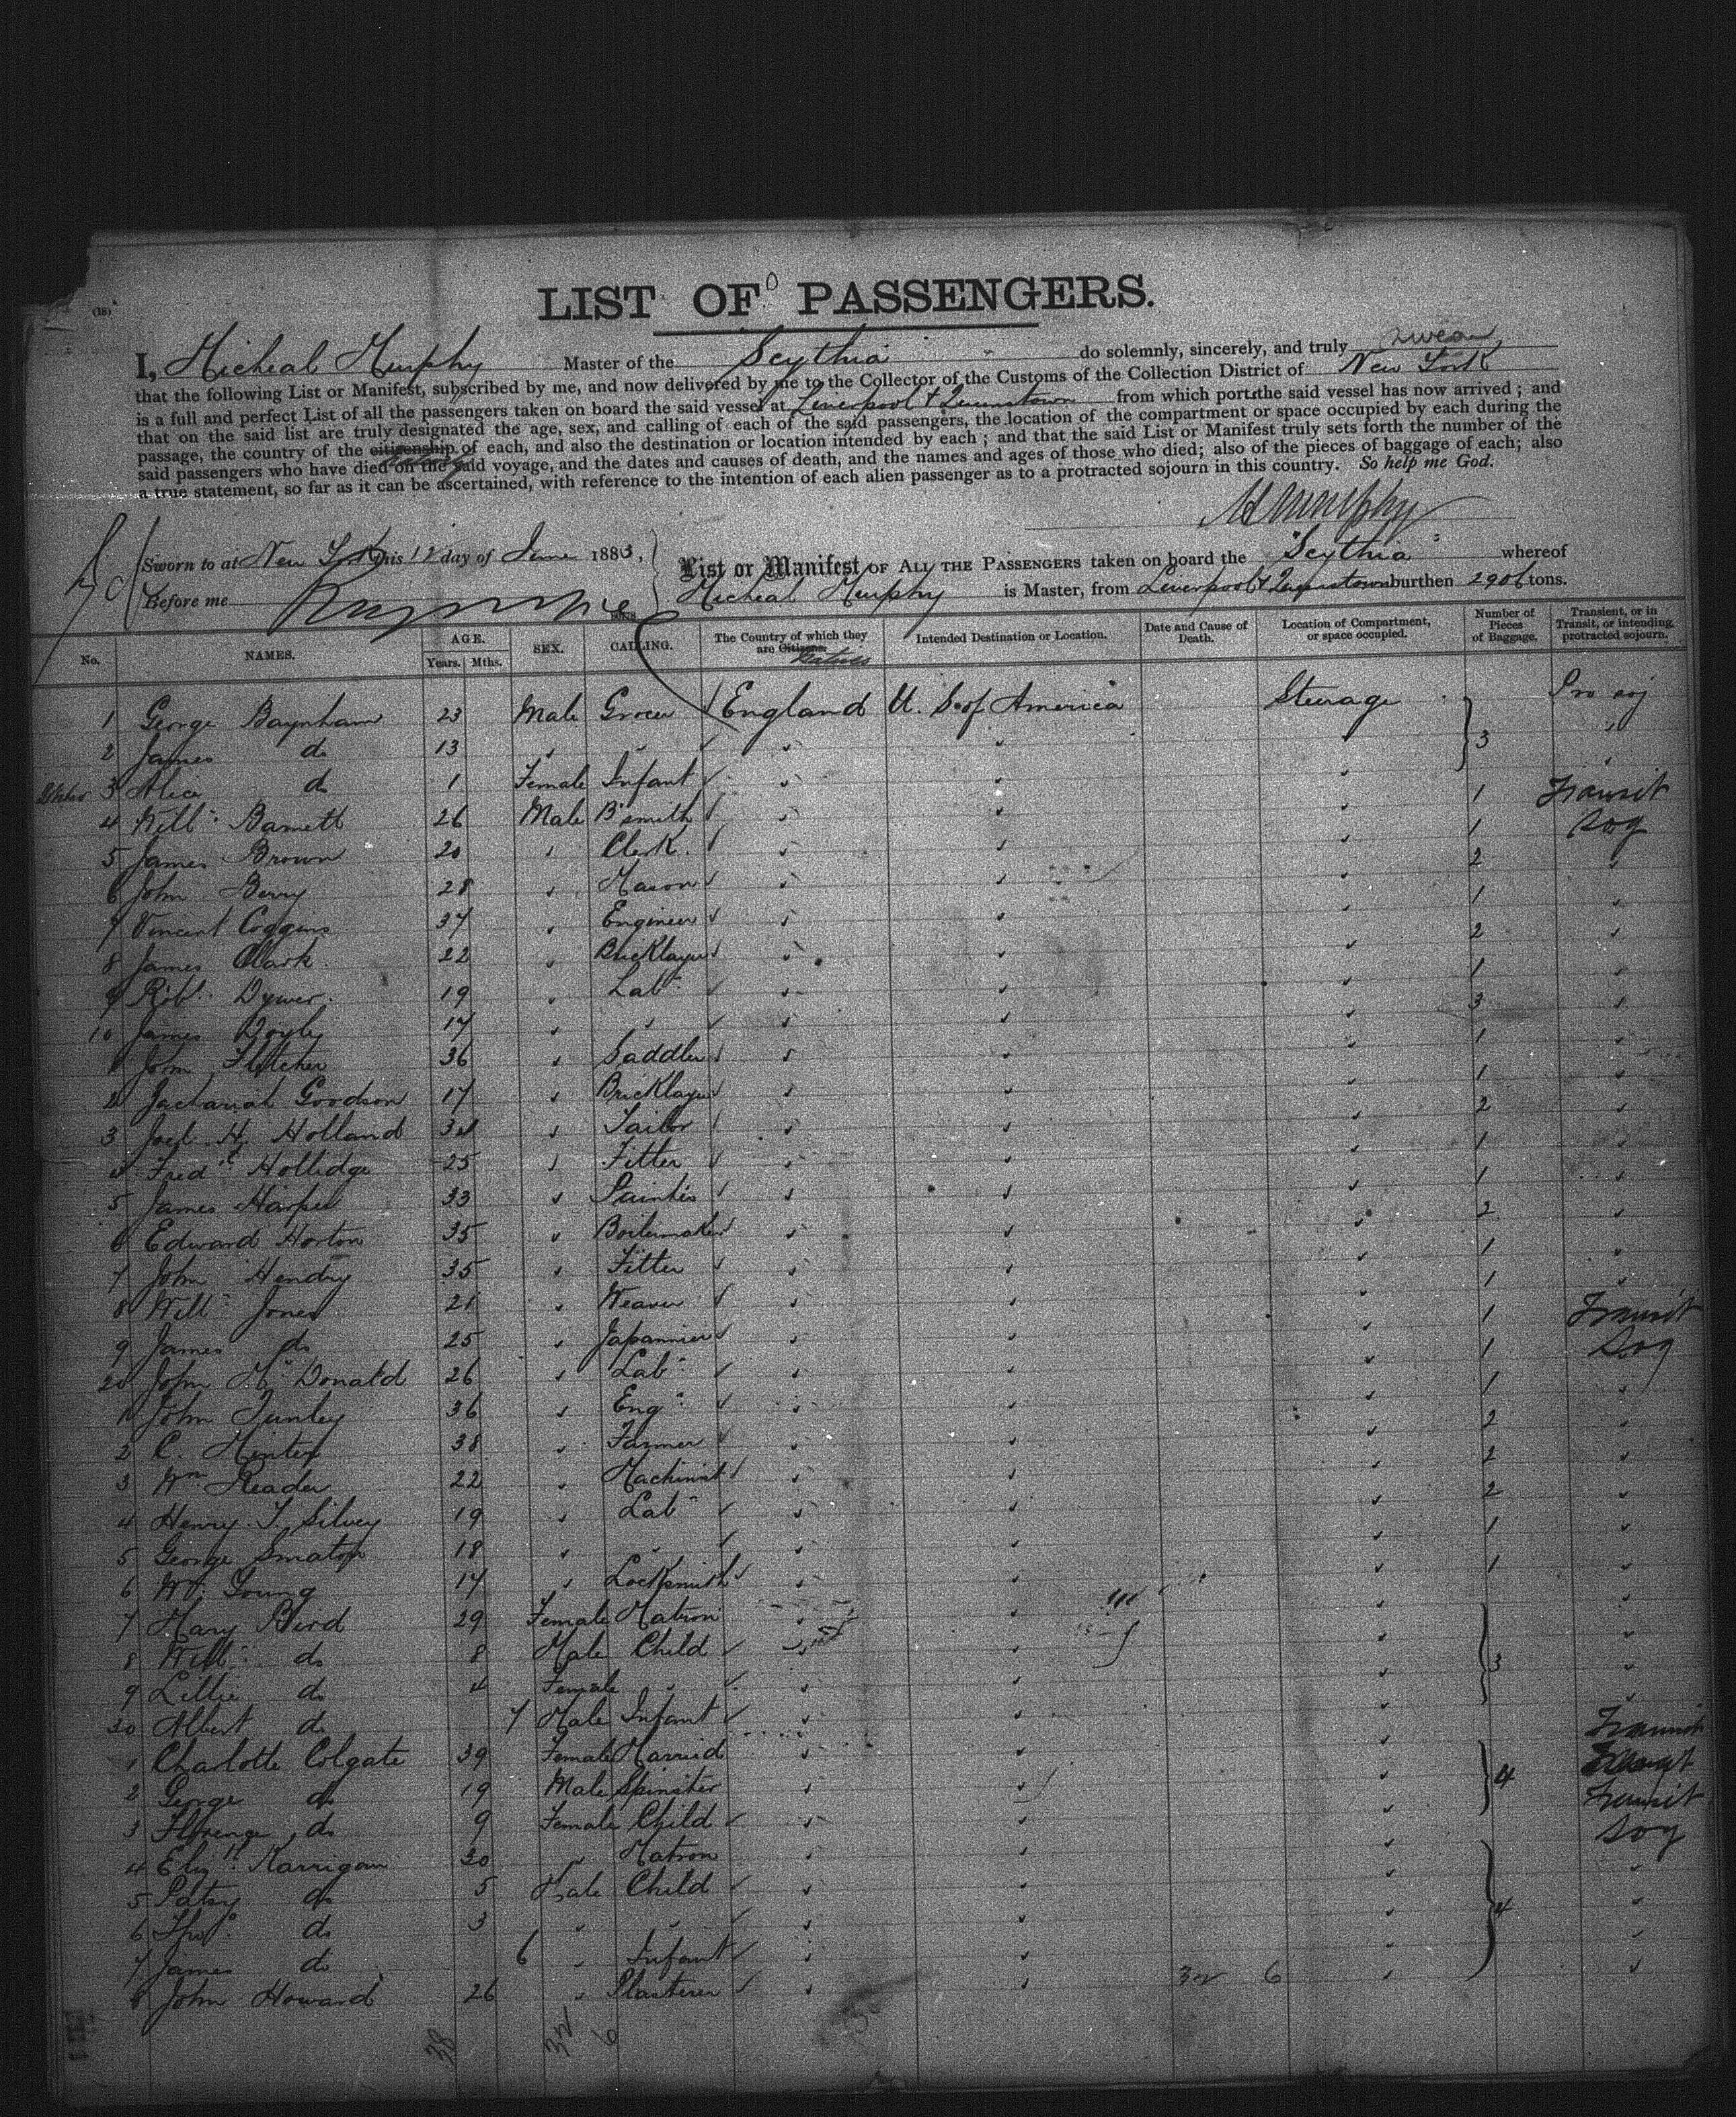 (18)
LIST OF PASSENGERS.
I, Micheal Murphy Master of the Scythia do solemnly, sincerely, and truly swear,
that the following List or Manifest, subscribed by me, and now delivered by me to the Collector of the Customs of the Collection District of New York
is a full and perfect List of all the passengers taken on board the said vessel at Liverpool & Queenstown from which port the said vessel has now arrived; and
that on the said list are truly designated the age, sex, and calling of each of the said passengers, the location of the compartment or space occupied by each during the
passage, the country of the citizenship of each, and also the destination or location intended by each; and that the said List or Manifest truly sets forth the number of the
said passengers who have died on the said voyage, and the dates and causes of death, and the names and ages of those who died; also of the pieces of baggage of each; also
a true statement, so far as it can be ascertained, with reference to the intention of each alien passenger as to a protracted sojourn in this country. So help me God.
M Murphy
Sworn to at New York this 12 day of June 1883,
Before me
List or Manifest OF ALL THE PASSENGERS taken on board the "Scythia" whereof
Micheal Murphy is Master, from Liverpool & Queenstown burthen 2906 tons.
No. NAMES. AGE. Years. Mths. SEX. CALLING. The Country of which they are Citizens. Natives Intended Destination or Location. Date and Cause of Death. Location of Compartment, or space occupied. Number of Pieces of Baggage. Transient, or in Transit, or intending protracted sojourn.
1 George Baynham 23 Male Grocer England U. S. of America Steerage Pro soj
2 James do 13 3
3 Alice do 1 Female Infant
4 Willm Barnett 26 Male B'smith 1 Transit
5 James Brown 20 Clerk 1 Soj
6 John Berry 28 Mason 2
7 Vincent Coggins 37 Engineer 1
8 James Clark 22 Bricklayer 2
9 Robt Dywer 19 Labr 1
10 James Doyle 17 3
1 John Fletcher 36 Saddler 1
2 Goodson 17 Bricklayer 1
3 H. Holland 34 Tailor 2
4 Fredk Hollidge 25 Fitter 1
5 James Harper 33 Painter 1
6 Edward Horton 35 Boilermaker 2
7 John Hendry 35 Fitter 1
8 Willm Jones 21 Weaver 1
9 James do 25 Japannier 1 Transit
20 John McDonald 26 Labr 1 Soj
1 John Tunley 36 Engr 1
2 C. Minter 38 Farmer 2
3 Wm Reader 22 Machinist 2
4 Henry T. Silvey 19 Labr 2
5 George Smaton 18 1
6 Wm Young 17 Locksmith 1
7 Mary Bird 29 Female Matron
8 Willm do 8 Male Child 3
9 Lillie do 4 Female
30 Albert do 7 Male Infant
1 Charlotte Colgate 39 Female Married Transit
2 George do 19 Male Spinster 4
3 Florence do 9 Female Child Transit
4 Elizth Karrigan 30 Matron Soj
5 Patsy do 5 Male Child
6 Thos do 3 4
7 James do 6 Infant
8 John Howard 26 Plasterer
32 6
38 32 6